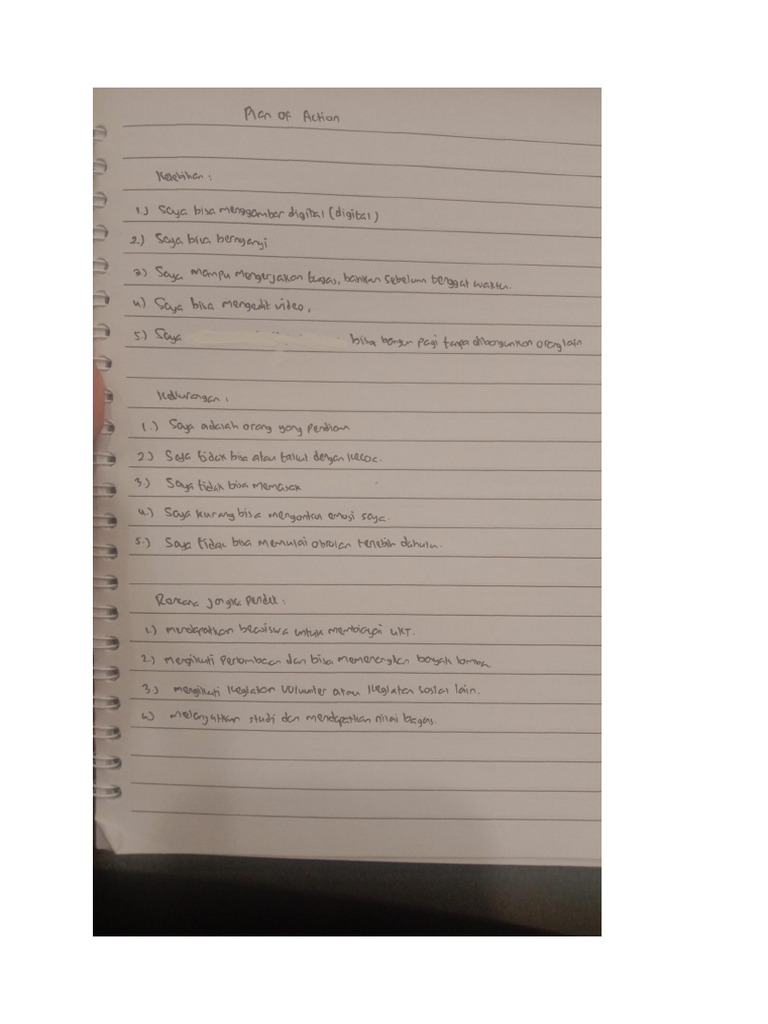 Plan Of Action
Kelebihan :
1.) Saya bisa menggambar digital (digital)
2.) Saya bisa bernyanyi
3) Saya mampu mengerjakan tugas, bahkan sebelum tenggat waktu.
4) Saya bisa mengedit video.
5.) Saya bisa bangun pagi tanpa dibangunkan orang lain
Kekurangan :
1.) Saya adalah orang yang pendiam
2) Saya tidak bisa atau takut dengan kecoa.
3.) Saya tidak bisa memasak
4.) Saya kurang bisa mengontrol emosi saya.
5.) Saya tidak bisa memulai obrolan terlebih dahulu.
Rencana jangka pendek :
1.) mendapatkan beasiswa untuk membiayai UKT.
2.) mengikuti perlombaan dan bisa memenangkan banyak lomba
3.) mengikuti kegiatan volunter atau kegiatan sosial lain.
4) melanjutkan studi dan mendapatkan nilai bagus.